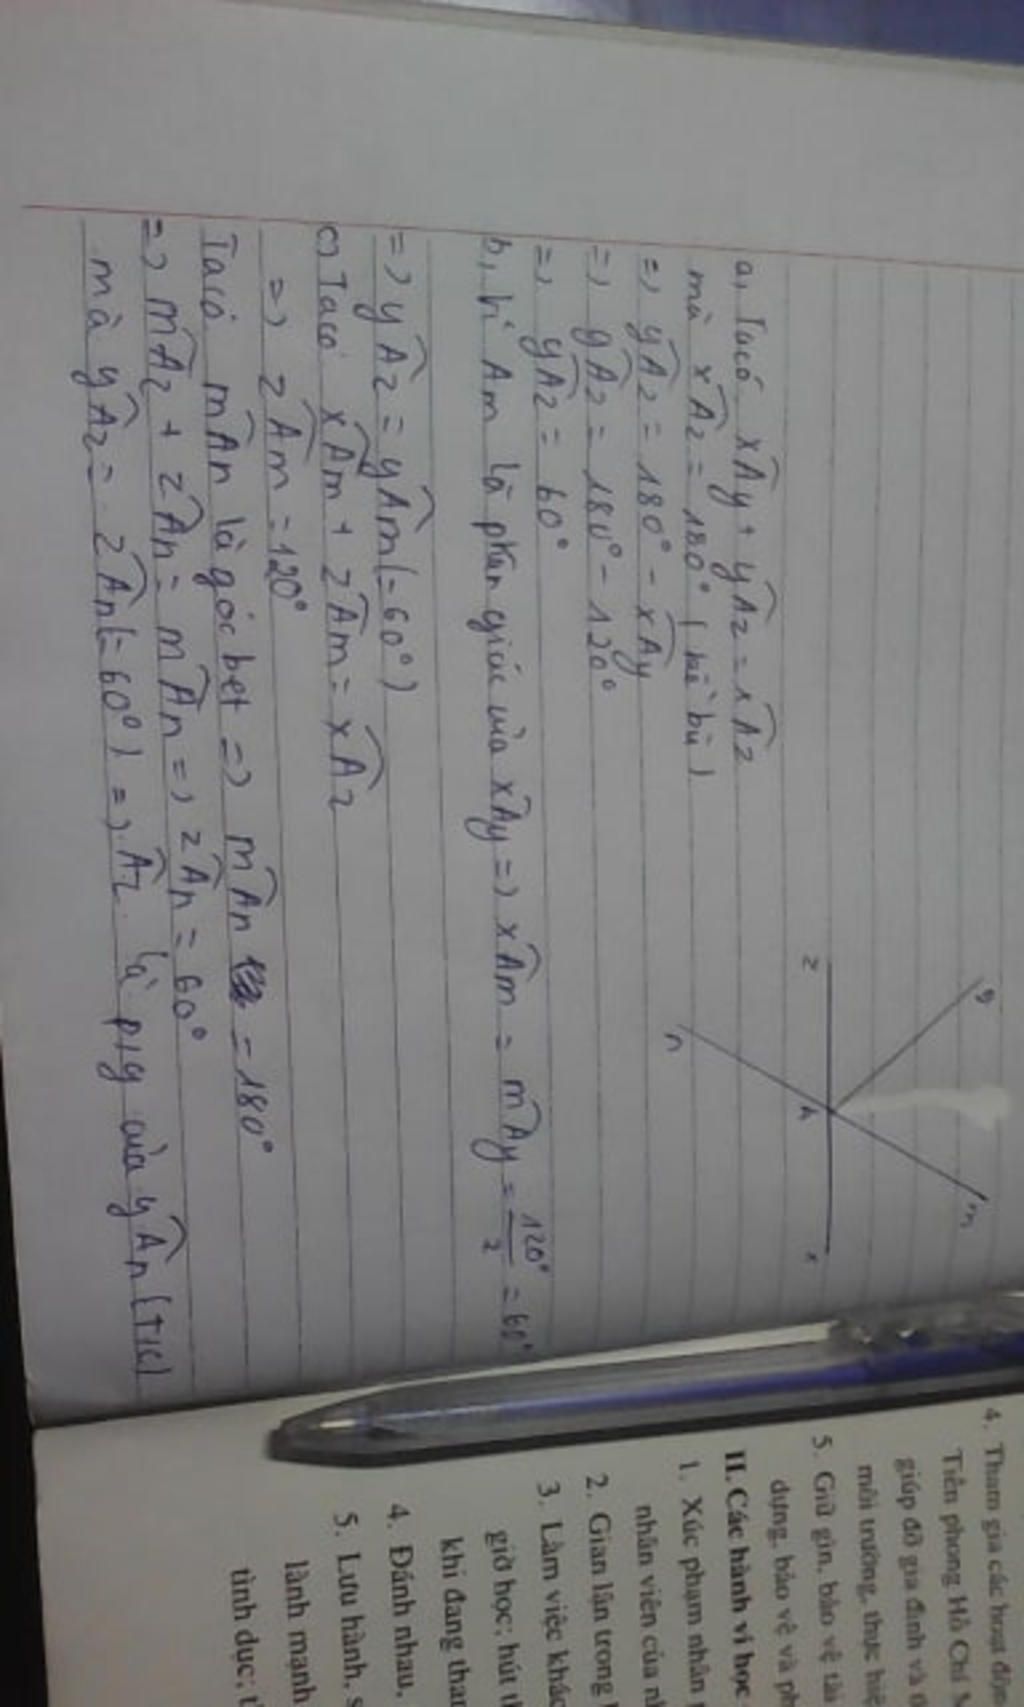 y
m
z
A
x
n
a, Ta có xÂy + yÂz = xÂz
mà xÂz = 180° (kề bù)
=> yÂz = 180° - xÂy
=> yÂz = 180° - 120°
=> yÂz = 60°
b, Vì Am là phân giác của xÂy => xÂm = mÂy = 120°/2 = 60°
=> yÂz = yÂm (= 60°)
c) Ta có xÂm + zÂm = xÂz
=> zÂm = 120°
Ta có mÂn là góc bẹt => mÂn = 180°
=> mÂz + zÂn = mÂn => zÂn = 60°
mà yÂz = zÂn (= 60°) => Az là p/g của yÂn (T/C)
4. Tham gia các hoạt độn
Tiền phong Hồ Chí
giúp đỡ gia đình và
môi trường, thực hiệ
5. Giữ gìn, bảo vệ tà
dựng, bảo vệ và ph
II. Các hành vi học
1. Xúc phạm nhân
nhân viên của n
2. Gian lận trong
3. Làm việc khác
giờ học; hút t
khi đang tha
4. Đánh nhau,
5. Lưu hành, s
lành mạnh
tình dục; t